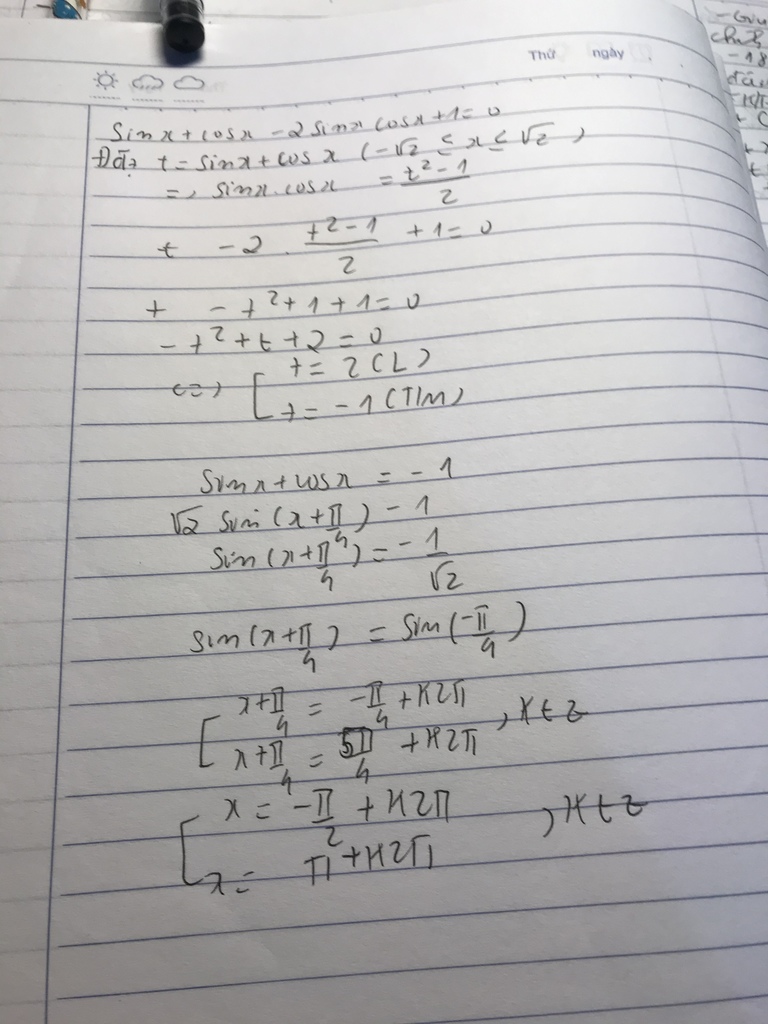 Thứ ngày
sinx + cosx - 2 sinx cosx + 1 = 0
Đặt t = sinx + cosx (-√2 ≤ x ≤ √2)
=> sinx.cosx = \frac{t² - 1}{2}
t - 2 . \frac{t² - 1}{2} + 1 = 0
t - t² + 1 + 1 = 0
- t² + t + 2 = 0
<=> [ t = 2 (L)
t = -1 (T/m)
sinx + cosx = -1
√2 sin(x + \frac{π}{4}) - 1
sin(x + \frac{π}{4}) = -\frac{1}{√2}
sin(x + \frac{π}{4}) = sin(\frac{-π}{4})
[ x + \frac{π}{4} = \frac{-π}{4} + k2π
x + \frac{π}{4} = \frac{5π}{4} + k2π , k ∈ Z
[ x = \frac{-π}{2} + k2π , k ∈ Z
x = π + k2π